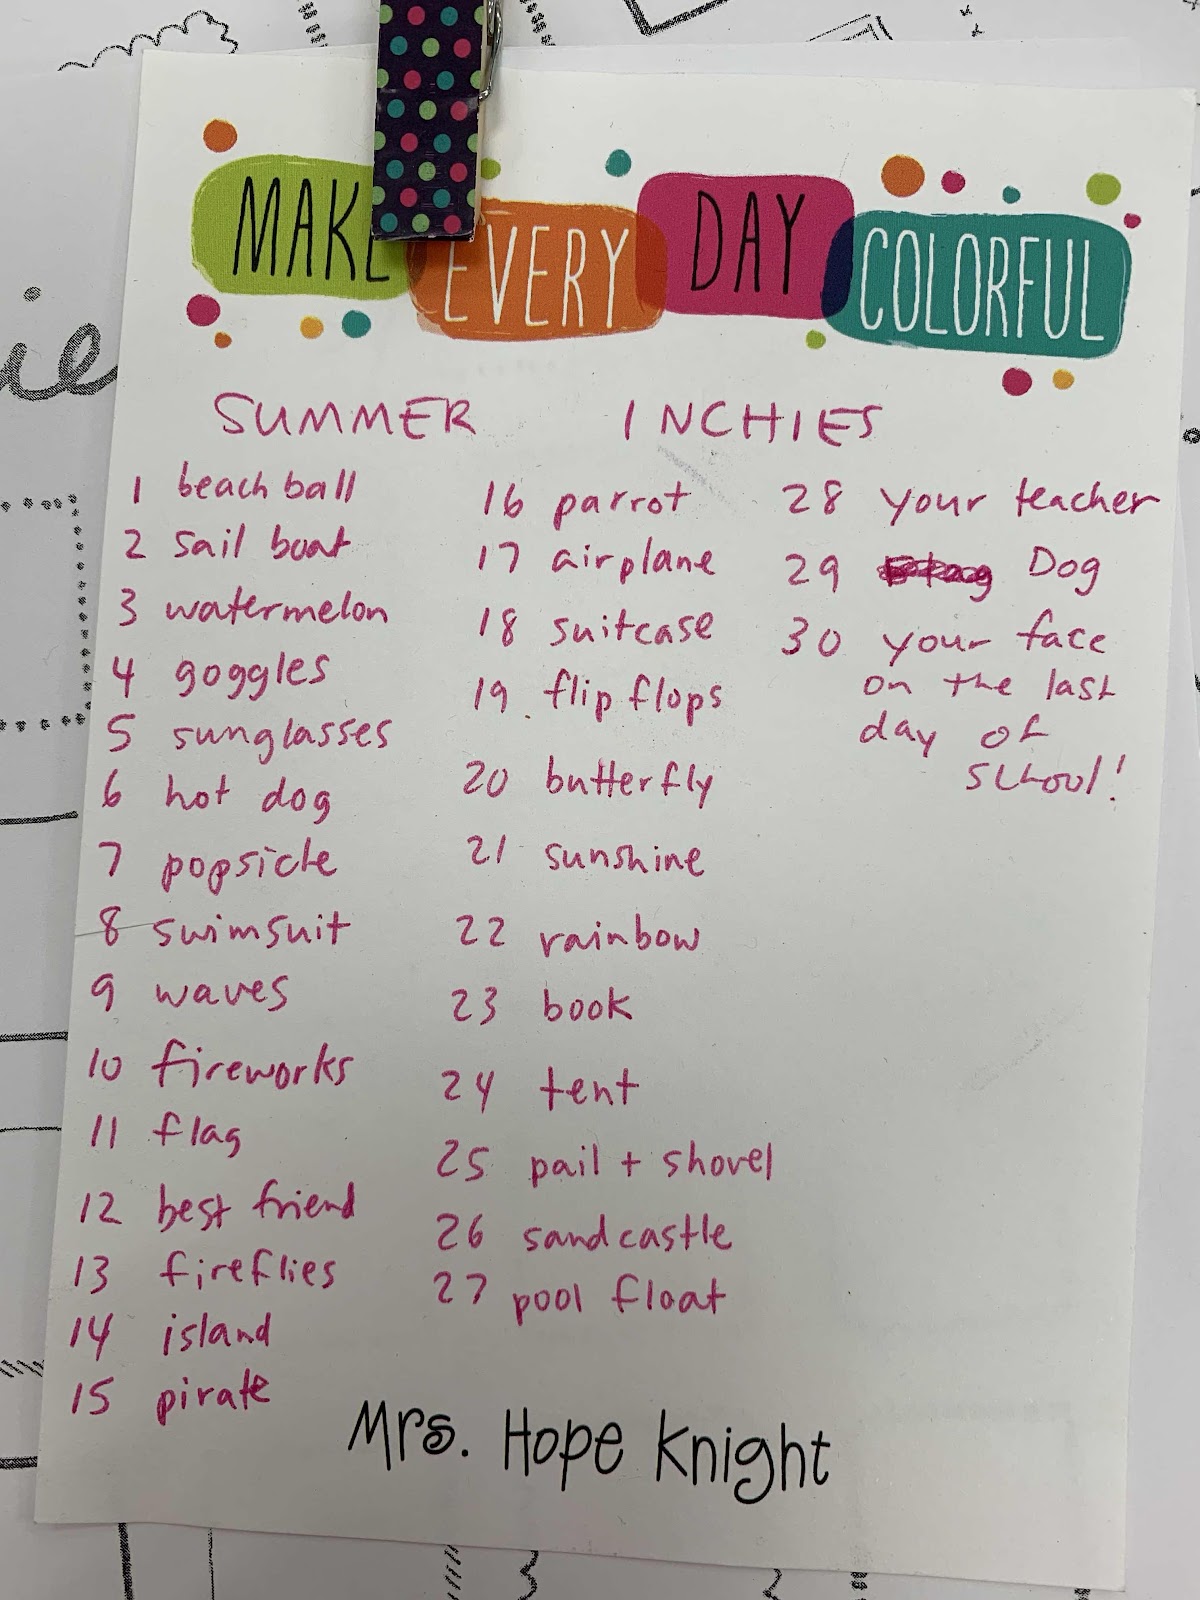 MAKE EVERY DAY COLORFUL
SUMMER INCHIES
1 beach ball
2 sail boat
3 watermelon
4 goggles
5 sunglasses
6 hot dog
7 popsicle
8 swimsuit
9 waves
10 fireworks
11 flag
12 best friend
13 fireflies
14 island
15 pirate
16 parrot
17 airplane
18 suitcase
19. flip flops
20 butterfly
21 sunshine
22 rainbow
23 book
24 tent
25 pail + shovel
26 sandcastle
27 pool float
28 your teacher
29 Dog
30 your face
on the last
day of
school!
Mrs. Hope Knight